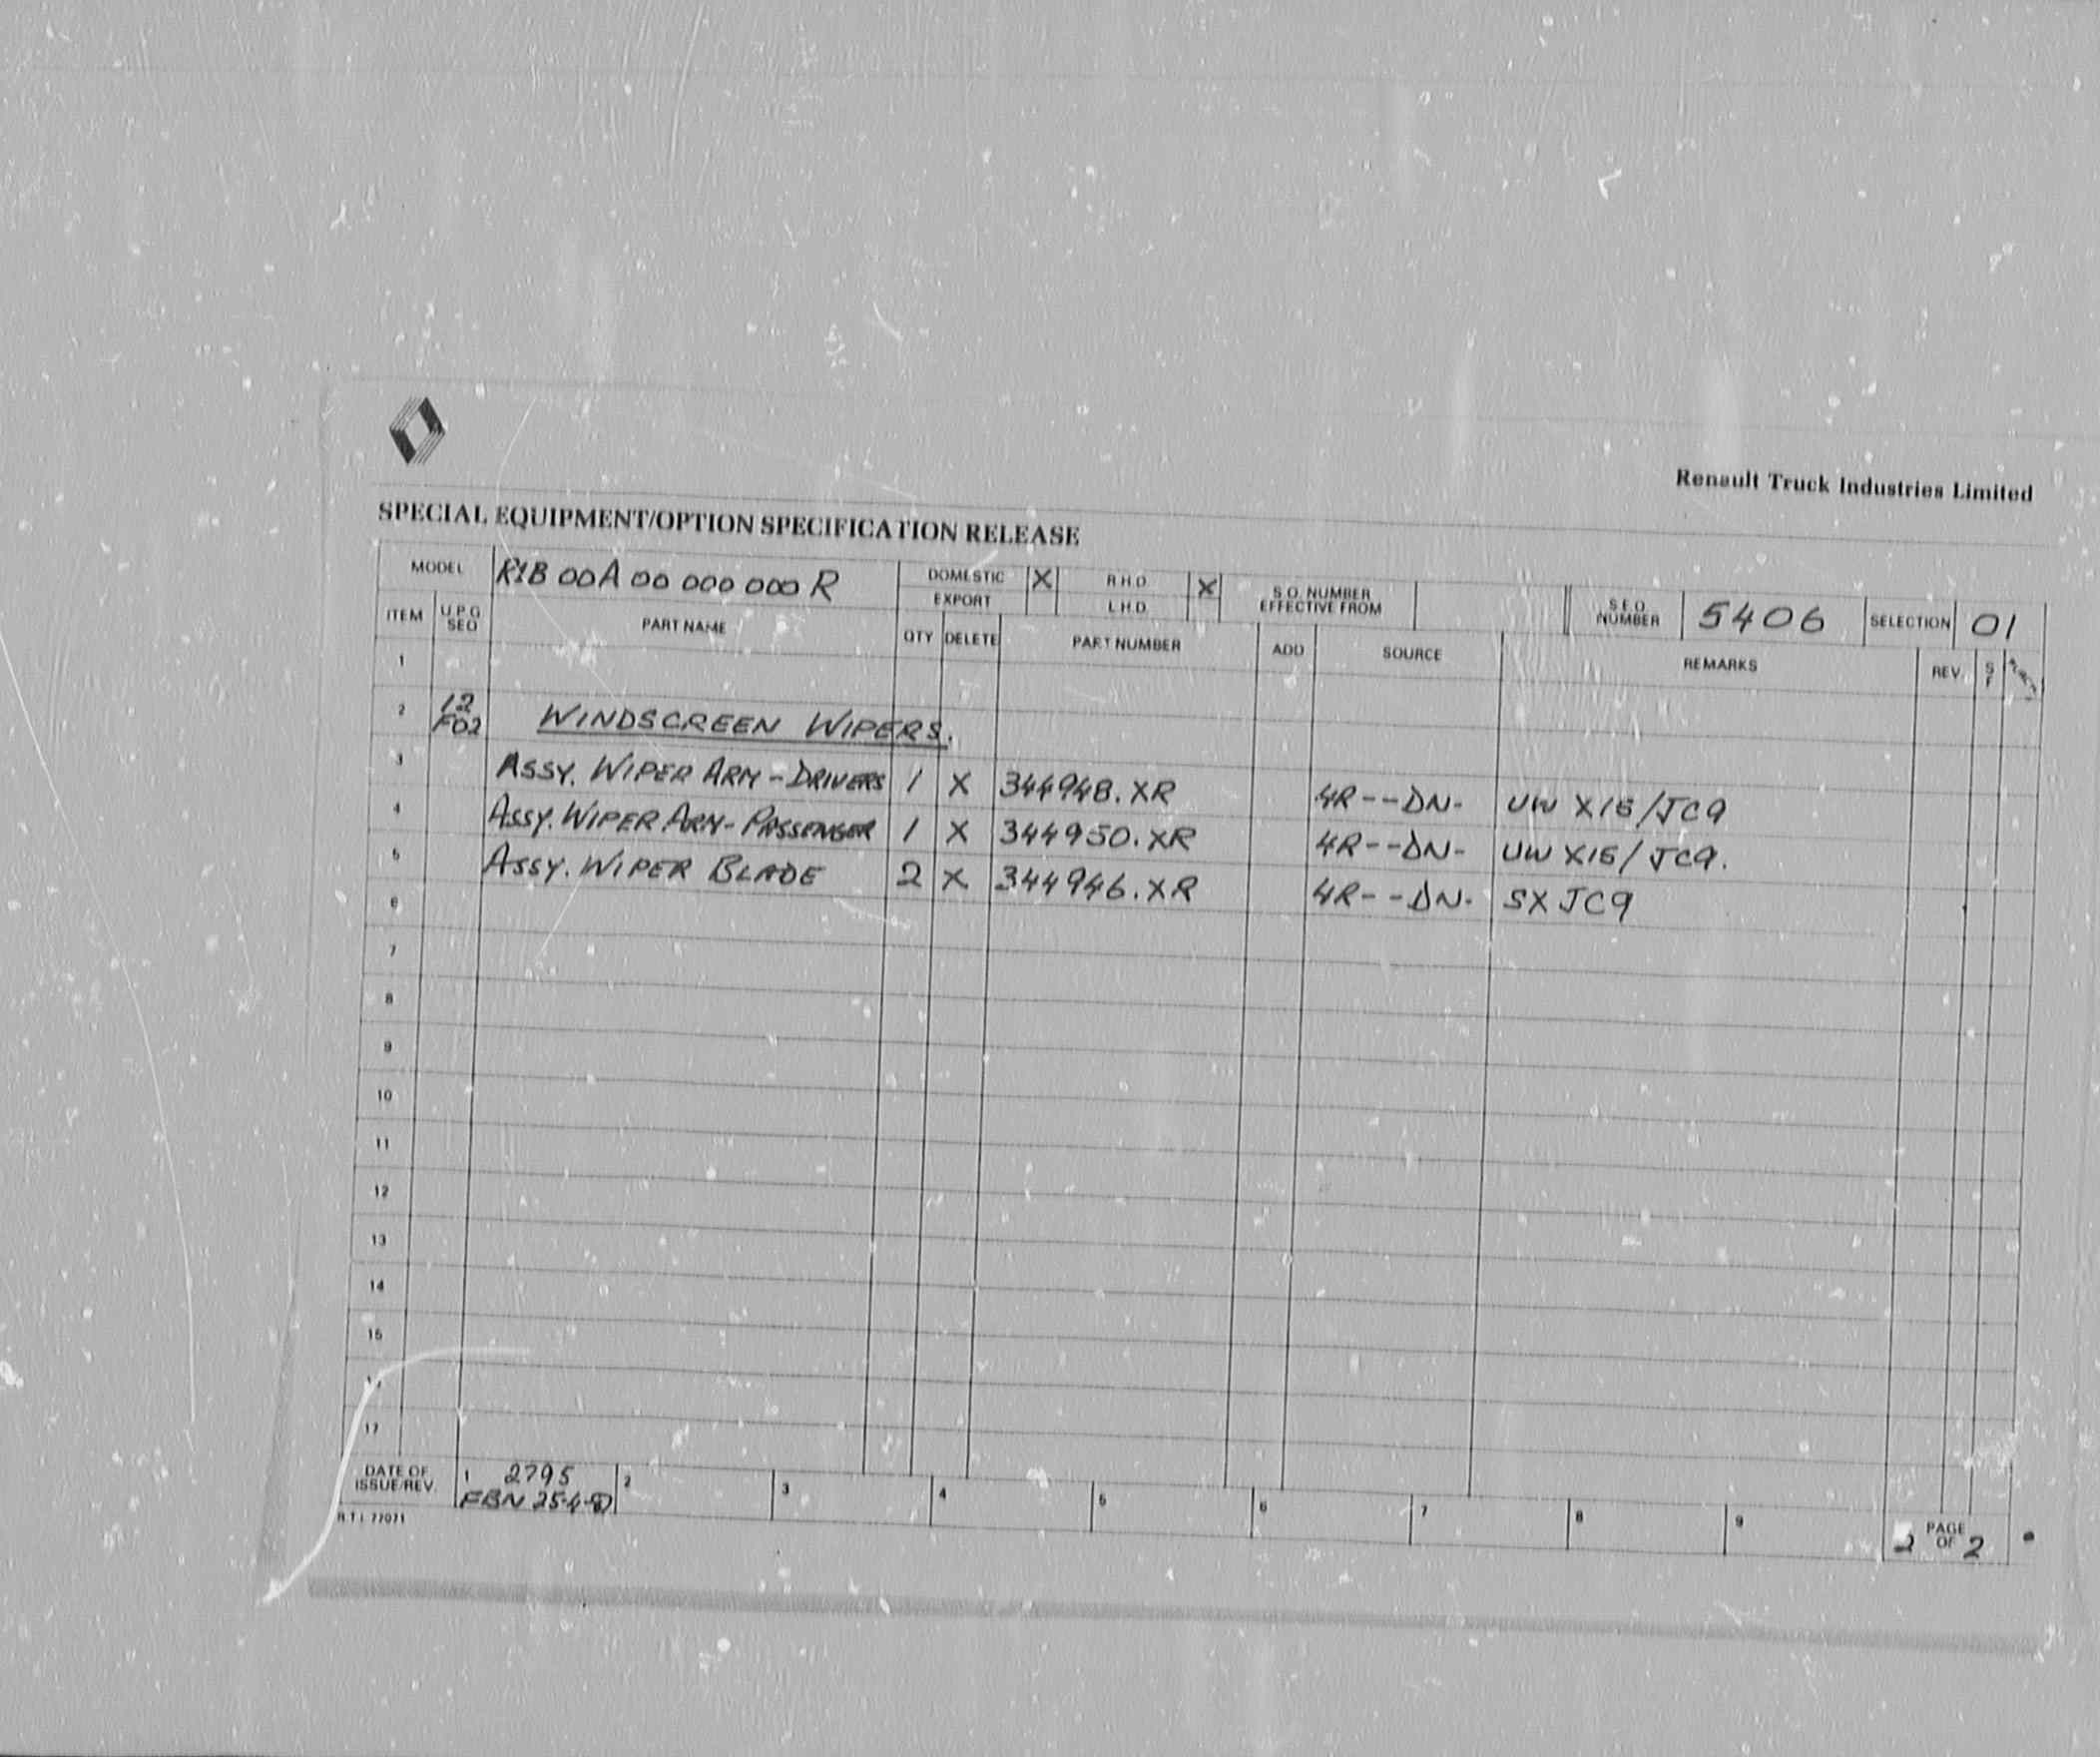 Renault Truck Industries Limited
SPECIAL EQUIPMENT/OPTION SPECIFICATION RELEASE
MODEL R1B 00A 00 000 000 R DOMESTIC X R.H.D. X S.O. NUMBER EFFECTIVE FROM S.E.O. NUMBER 5406 SELECTION 01
EXPORT L.H.D.
ITEM U.P.G. SEQ PART NAME QTY DELETE PART NUMBER ADD SOURCE REMARKS REV. S F
1
2 12 F02 WINDSCREEN WIPERS.
3 ASSY. WIPER ARM - DRIVERS 1 X 344948.XR 4R--DN- UW X15/JC9
4 ASSY. WIPER ARM - PASSENGER 1 X 344950.XR 4R--DN- UW X15/JC9.
5 ASSY. WIPER BLADE 2 X 344946.XR 4R--DN- SX JC9
6
7
8
9
10
11
12
13
14
15
17
DATE OF ISSUE/REV. 1 2795 2 3 4 5 6 7 8 9 2 PAGE OF 2
R.T.I. 77071